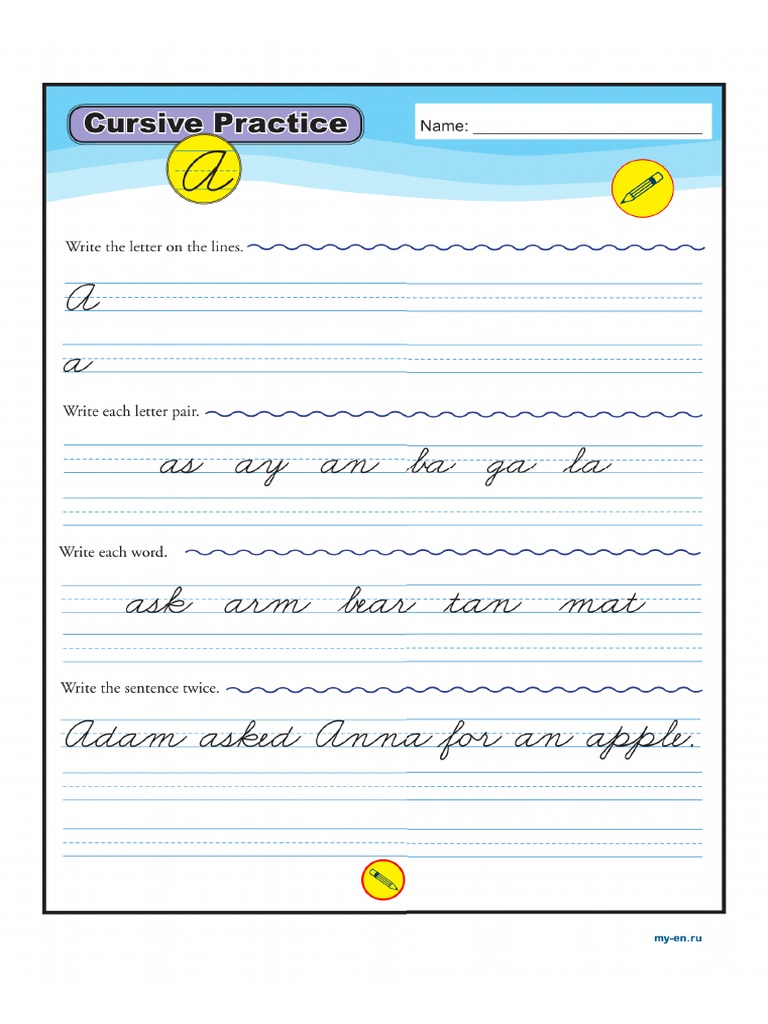 Cursive Practice
Name:
A
Write the letter on the lines.
A
a
Write each letter pair.
as ay an ba ga la
Write each word.
ask arm bear tan mat
Write the sentence twice.
Adam asked Anna for an apple.
my-en.ru